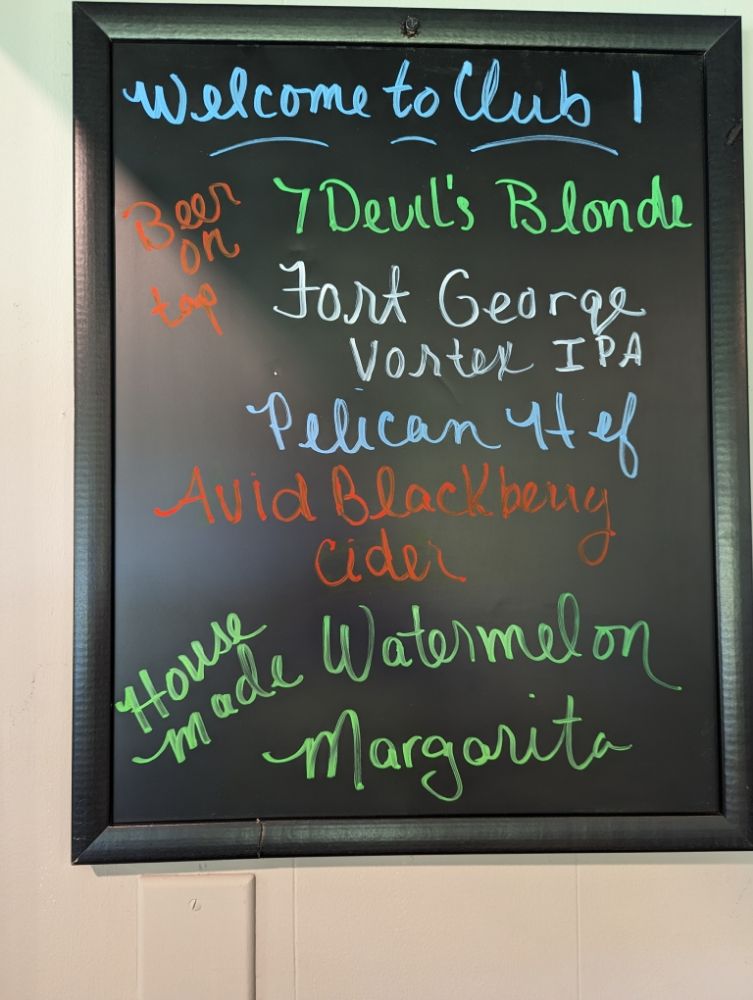 Welcome to Club 1
Beer on tap
7 Devil's Blonde
Fort George
Vortex IPA
Pelican Hef
Avid Blackberry
Cider
House made
Watermelon
Margarita